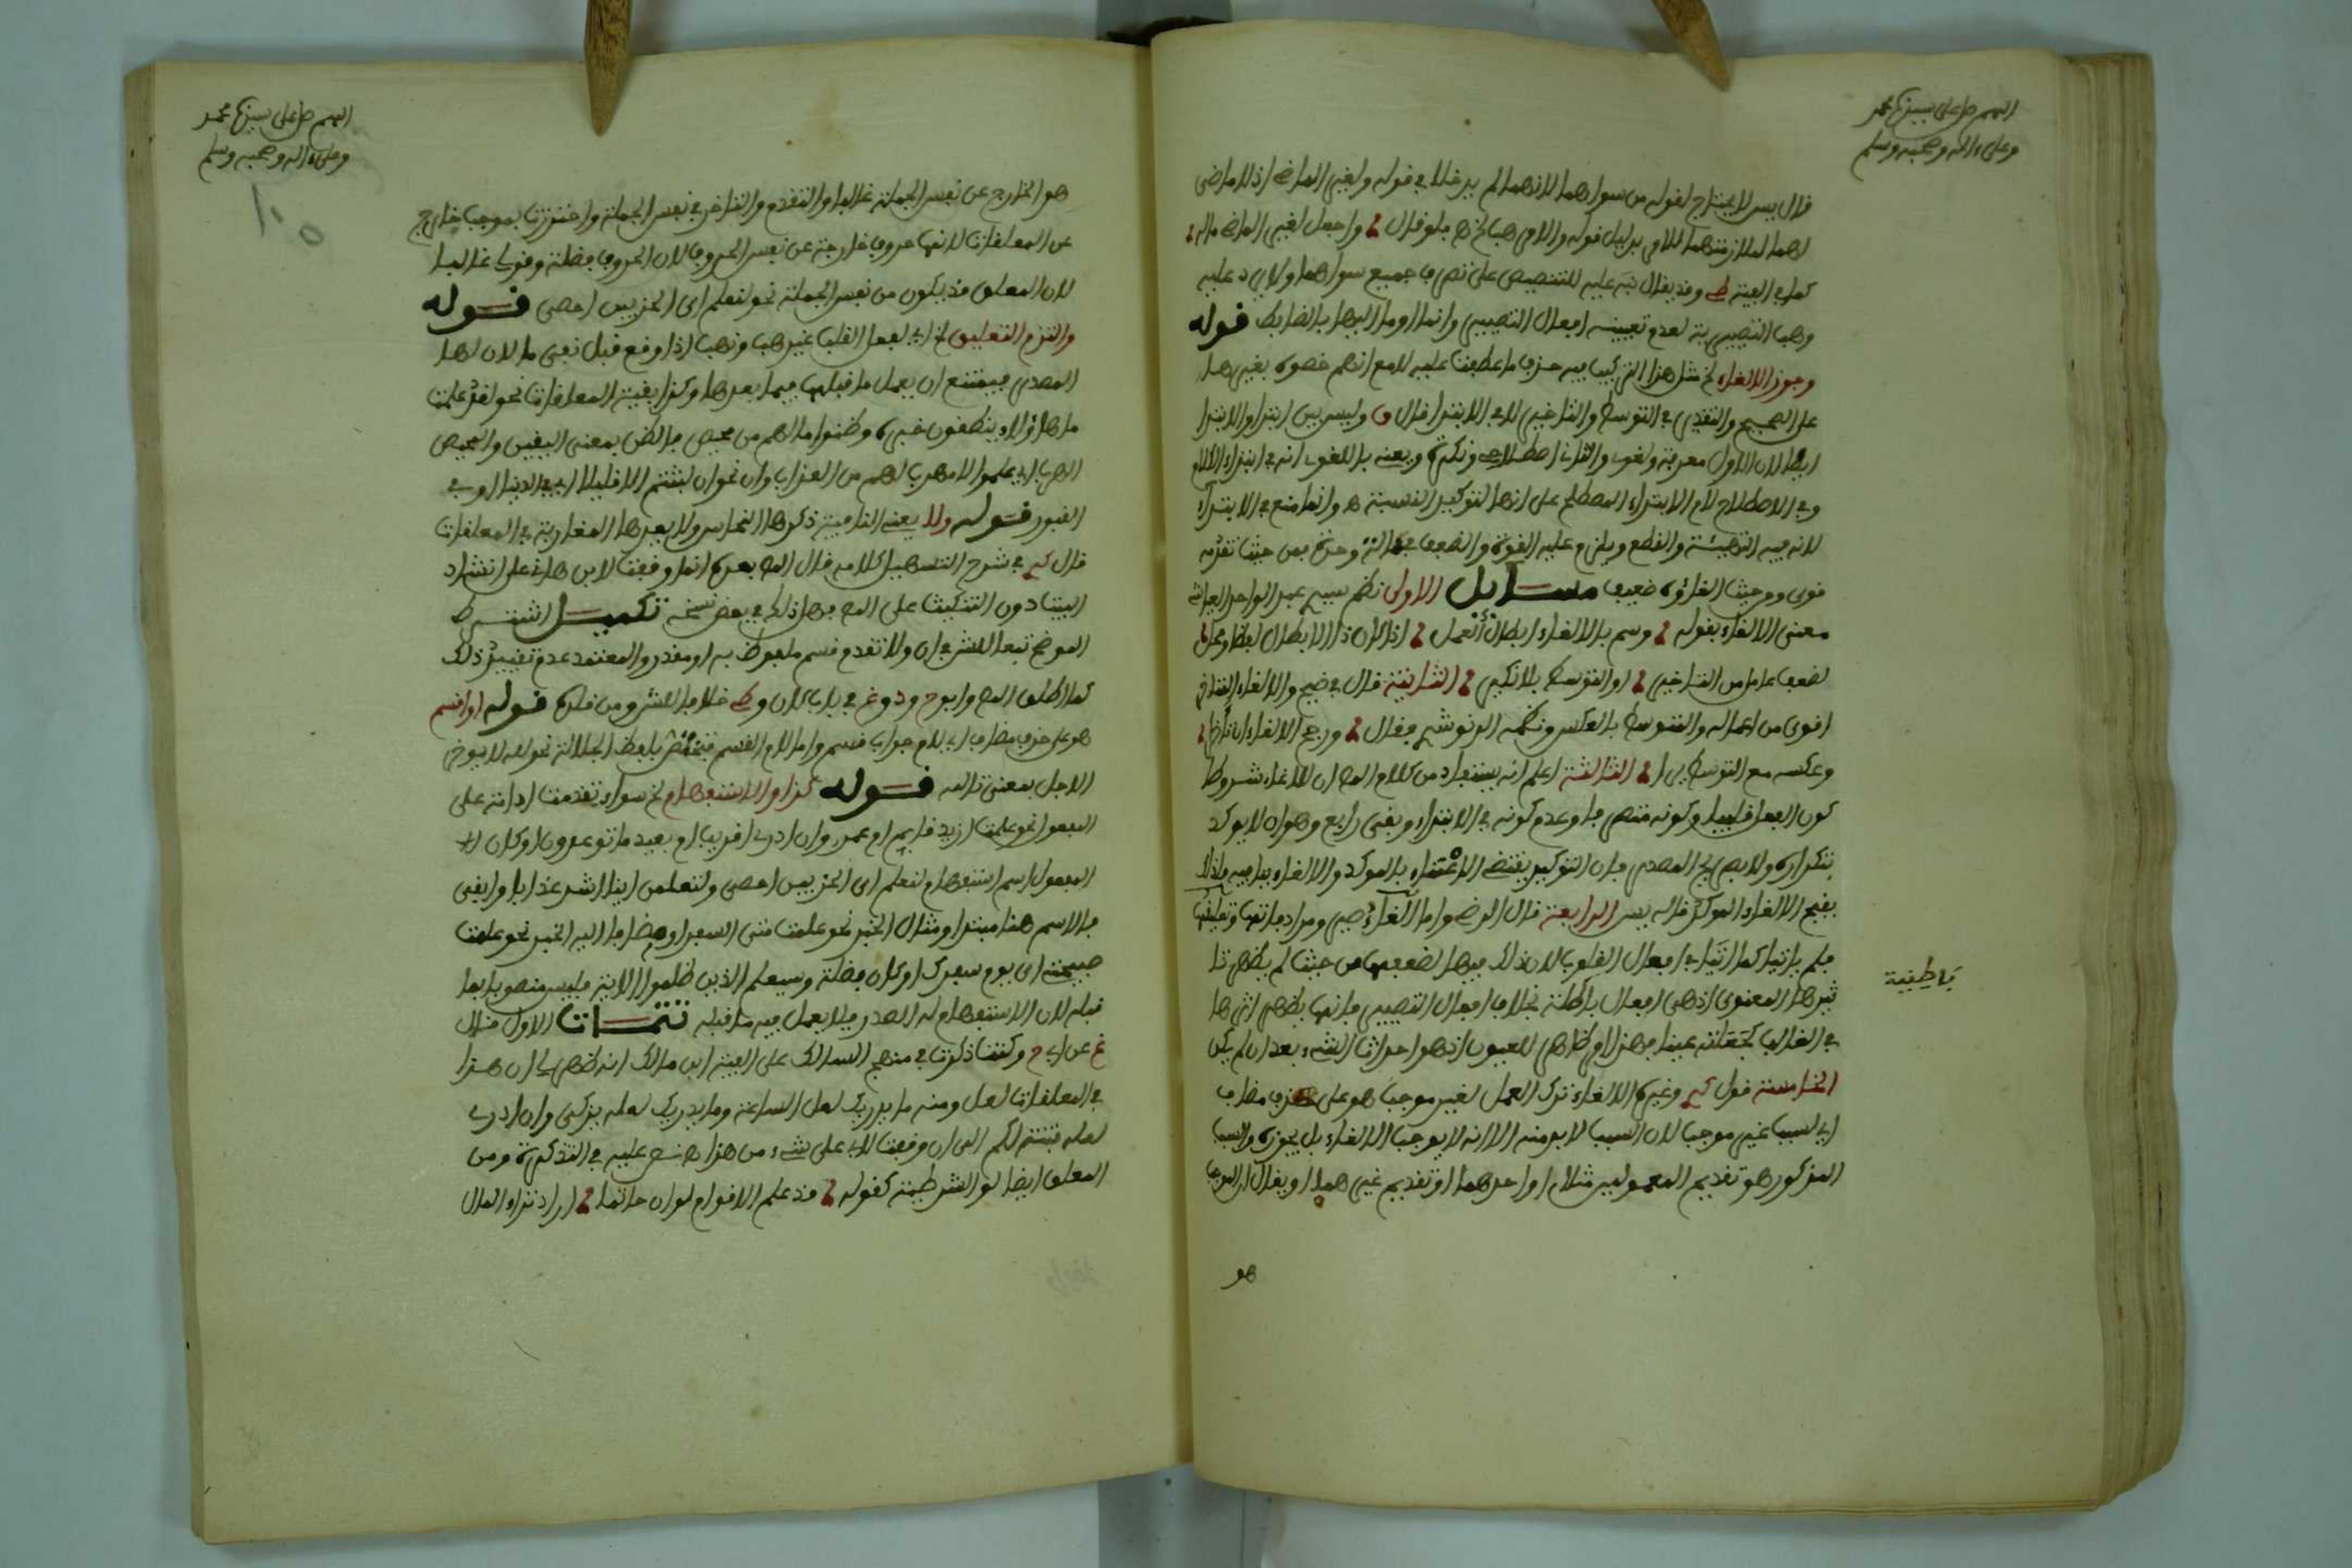 اللهم صل على سيدنا محمد
وعلى ءاله وصحبه وسلم
قال يس لا يحتاج لقوله من سواهما لانهما لم يدخلا في قوله ولغير الماض اذ لا ماضى
لهما لملازمتهما للامر بدليل قوله والامر هب الخ فلو قال واجعل لغير الماض ماله
كما في الفية ط وقد يقال نبه عليه للتنصيص على تصرف جميع سواهما ولا يرد عليه
وهب التصييرية لعدم تعيينه افعال التصيير وانما اومأ اليها بالضابط قوله
وجوز الالغاء الخ مثل هذا التركيب فيه حذف ما عطفت عليه لا مع انهم خصوه بغير هذا
على الصحيح والتقدير في التوسط والتاخير لا في الابتدا قال و وليس بين ابتدا والابتدا
ايطا لان الاول معرفة ولغوى والثانى اصطلاحى ونكرة ويعنى باللغوى انه في ابتداء الكلام
وفي الاصطلاح لام الابتداء المصطلح على انها لتوكيد النسبة هـ وانما منع في الابتداء
لانه فيه التهيئة والقطع ويلزم عليه القوة والضعف في حالة وحدة فمن حيث تقدمه
قوى ومن حيث الغاؤه ضعيف مسايل الاولى نظم سيدى عبد الواحد
معنى الالغاء بقوله وسم بالالغاء ابطال العمل اذا كان ذا الابطال لفظا ومحل
لضعف عامل من التاخير او التوسط بلا نكير الثانية قال في ضيح والالغاء المتاخر
اقوى من اعماله والمتوسط بالعكس ونظمه الونوشى فقال ورجح الالغاء ان تاخرا
وعكسه مع التوسط يرا الثالثة اعلم انه يستفاد من كلام المص ان للالغاء شروطا
كون الفعل قلبيا وكونه متصرفا وعدم كونه في الابتداء وبقى رابع وهو ان لا يوكد
بتكراره ولا بصريح المصدر فان التوكيد يقتضى الاعتناء بالموكد والالغاء ينافيه فلذلك
يقبح الالغاء الموكد قاله يس الرابعة قال الرضى واما الغاء صير ومرادفاتها وتعليقها
فلم ياتيا كما اتيا في افعال القلوب لان ذلك فيها لضعفها من حيث لم يظهر تا
ثيرها المعنوى اذ هى افعال باطنة بخلاف افعال التصيير فانها يظهر اثرها
باطنية
في الغالب كجعلته عينا فهذا امر ظاهر للعيون اذ هو احداث الشىء بعد ان لم يكن
الخامسة قول كـ وغيره الالغاء ترك العمل لغير موجب هو على حذف مضاف
اى لسبب غير موجب لان السبب لا بد منه الا انه لا يوجب الالغاء بل يجوزه والسبب
المذكور هو تقديم المعمولين مثلا او احدهما او تقديم غيرهما او يقال ان الموجب
هو
اللهم صل على سيدنا محمد
وعلى ءاله وصحبه وسلم
هو الخارج عن نفس الجملة غالبا والتقدم والتاخر في نفس الجملة واحترزت بموجب خارج
عن المعلقات لانها حروف خارجة عن نفس الحروف لان الحروف فضلة وقولى غالبا
لان المعلق قد يكون من نفس الجملة نحو لنعلم اى الحزبين احصى قوله
والتزم التعليق الخ اى لفعل القلب غير هب وتهب اذا وقع قبل نفى ما لان لها
الصدر فيمتنع ان يعمل ما قبلها فيما بعدها وكذا بقية المعلقات نحو لقد علمت
ما هاؤلاء ينطقون غيره وظنوا ما لهم من محيص فالظن بمعنى اليقين والمحيص
المهرب اى علموا لا مهرب لهم من العذاب وان نحو ان لبثتم الا قليلا اى في الدنيا او في
القبور قوله ولا يعنى النافية ذكرها النحاس ولا يعدها المغاربة في المعلقات
قال كـ في شرح التسهيل كلامه قال المص بعده انما وقعت لابن هانى على انشاد
البيت دون التنكيت على المص فهاذاك في بعض نسخه تكميل اشترط
الموضح تبعا للشرح ان ولا تقدم قسم ملفوظ به او مقدر والمعتمد عدم تقييد ذلك
كما اطلق المص وابوح ودوغ في باب كان وط خلافا للش ومن قلده قوله او قسم
هو على حذف مضاف اى لام جواب قسم واما لام القسم فتختص بلفظ الجلالة نحو لله لا يوخر
الاجل بمعنى تالله قوله كذا والاستفهام الخ سواء تقدمت اداته على
المفعول نحو علمت ازيد قايم ام عمرو وان ادرى اقريب ام بعيد ما توعدون او كان احد
المفعولين اسم استفهام لنعلم اى الحزبين احصى ولتعلمن اينا اشد عذابا وابقى
فالاسم هنا مبتدا ومثال الخبر نحو علمت متى السفر او مضافا اليه الخبر نحو علمت
صبيحة اى يوم سفرك او كان فضلة وسيعلم الذين ظلموا الاية فليس منصوبا بما
قبله لان الاستفهام له الصدر فلا يعمل فيه ما قبله تتمات الاول قال
غ عن ابى ح وكنت ذكرت في منهج السالك على الفية ابن مالك انه ظهر لى ان هذا
في المعلقات لعل ومنه ما يدريك لعل الساعة وما يدريك لعله يزكى وان ادرى
لعله فتنة لكم الى ان وقفت لابى على شىء من هذا هـ نص عليه في التذكرة ومن
المعلق ايضا لو الشرطية كقوله قد علم الاقوام لو ان حاتما اراد ثراء المال